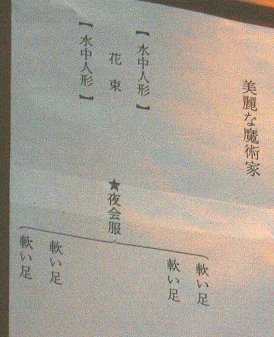 美麗な魔術家
【水中人形】
花束
【水中人形】
★夜会服
軟い足
軟い足
軟い足
軟い足